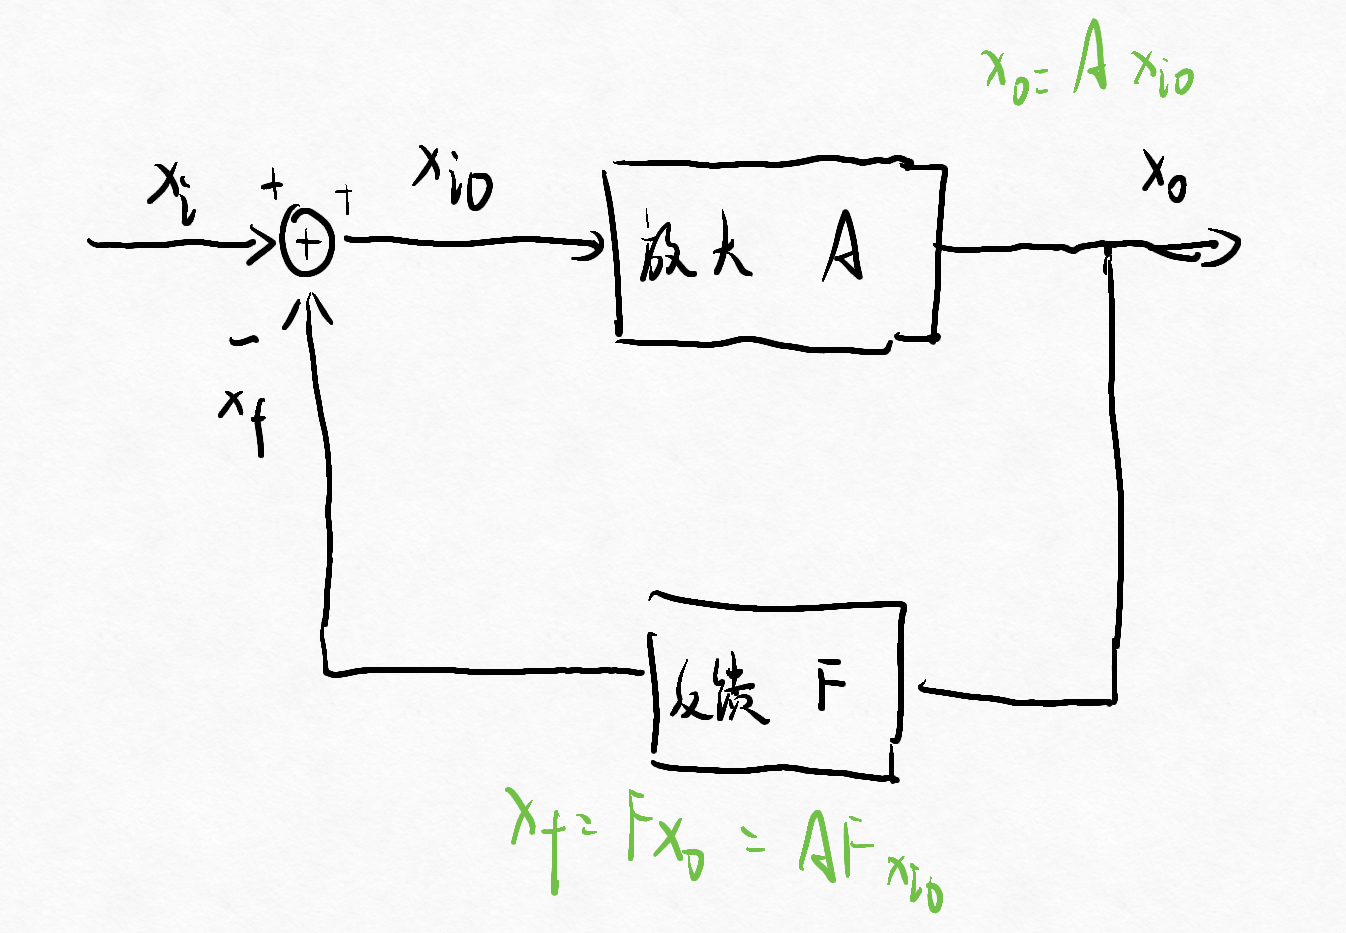 x₀ = A xᵢ₀
xᵢ + + xᵢ₀ 放大 A x₀
+
-
x_f
反馈 F
x_f = Fx₀ = AFxᵢ₀